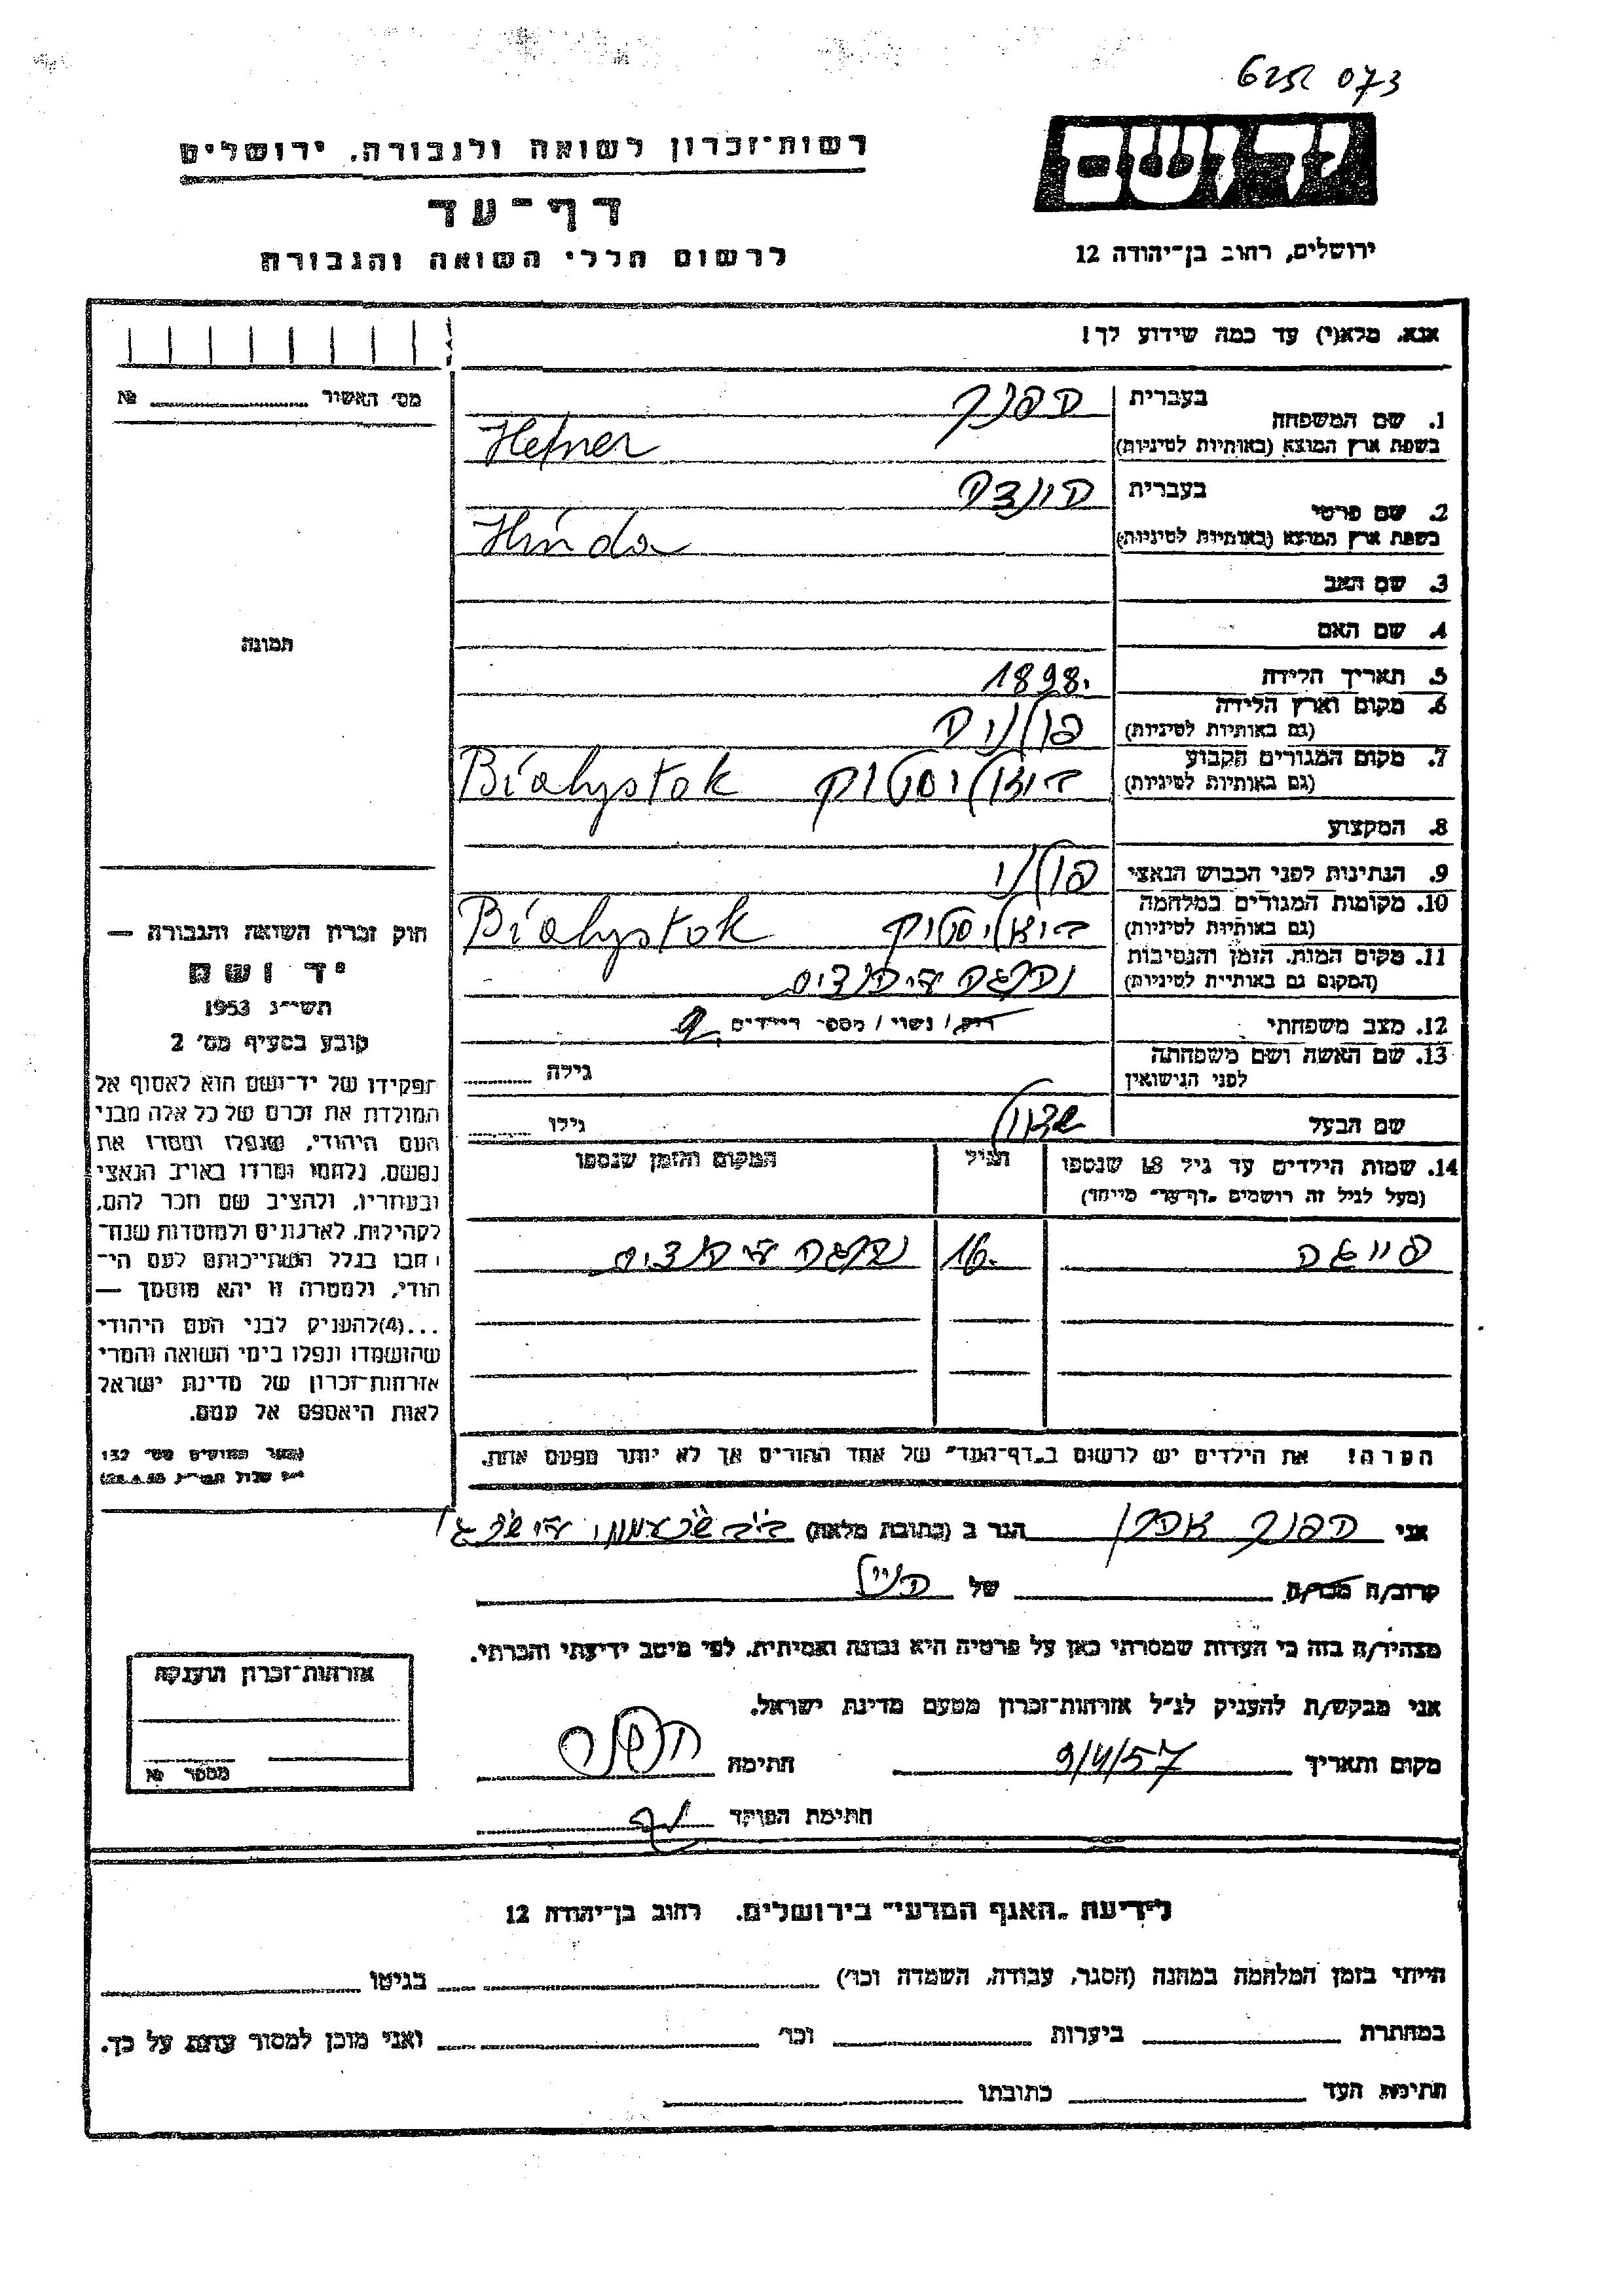 625Ꭱ 073
יד ושם
רשות־זכרון לשואה ולגבורה, ירושלים
דף־עד
לרשום חללי השואה והגבורה
ירושלים, רחוב בן־יהודה 12
אנא, מלא(י) עד כמה שידוע לך!
מס׳ האשור № 
1. שם המשפחה
בעברית הפנר
בשפת ארץ המוצא (באותיות לטיניות) Hefner
2. שם פרטי
בעברית הינדה
בשפת ארץ המוצא (באותיות לטיניות) Hinda
3. שם האב
4. שם האם
תמונה
5. תאריך הלידה 1898.
6. מקום וארץ הלידה
(גם באותיות לטיניות) פולניה
7. מקום המגורים הקבוע
(גם באותיות לטיניות) ביאליסטוק Białystok
8. המקצוע
9. הנתינות לפני הכבוש הנאצי פולני
10. מקומות המגורים במלחמה
(גם באותיות לטיניות) ביאליסטוק Białystok
11. מקום המות, הזמן והנסיבות
(המקום גם באותיות לטיניות)
12. מצב משפחתי רוק / נשוי / מספר הילדים
13. שם האשה ושם משפחתה
לפני הנישואין גילה
שם הבעל גילו
14. שמות הילדים עד גיל 18 שנספו
(מעל לגיל זה רושמים "דף־עד" מייחד)
הגיל
המקום והזמן שנספו
16.
הערה! את הילדים יש לרשום ב"דף־העד" של אחד ההורים אך לא יותר מפעם אחת.
חוק זכרון השואה והגבורה —
יד ושם
תשי״ג 1953
קובע בסעיף מס׳ 2
תפקידו של יד־ושם הוא לאסוף אל
המולדת את זכרם של כל אלה מבני
העם היהודי, שנפלו ומסרו את
נפשם, נלחמו ומרדו באויב הנאצי
ובעוזריו, ולהציב שם וזכר להם,
לקהילות, לארגונים ולמוסדות שנח־
רבו בגלל השתייכותם לעם הי־
הודי, ולמטרה זו יהא מוסמך —
...(4)להעניק לבני העם היהודי
שהושמדו ונפלו בימי השואה והמרי
אזרחות־זכרון של מדינת ישראל
לאות היאספם אל עמם.
(ספר החוקים מס׳ 132
אני הפנר הגר ב (כתובת מלאה)
קרוב/ה מכר/ה של
מצהיר/ה בזה כי העדות שמסרתי כאן על פרטיה היא נכונה ואמיתית, לפי מיטב ידיעתי והכרתי.
אני מבקש/ת להעניק לנ״ל אזרחות־זכרון מטעם מדינת ישראל.
מקום ותאריך 9/4/57 חתימה הפנר
חתימת הפוקד
אזרחות־זכרון הוענקה
מספר №
לידיעת "האגף המדעי" בירושלים, רחוב בן־יהודה 12
הייתי בזמן המלחמה במחנה (הסגר, עבודה, השמדה וכו׳) בגיטו
במחתרת ביערות וכו׳ ואני מוכן למסור עדות על כך.
חתימת העד כתובתו